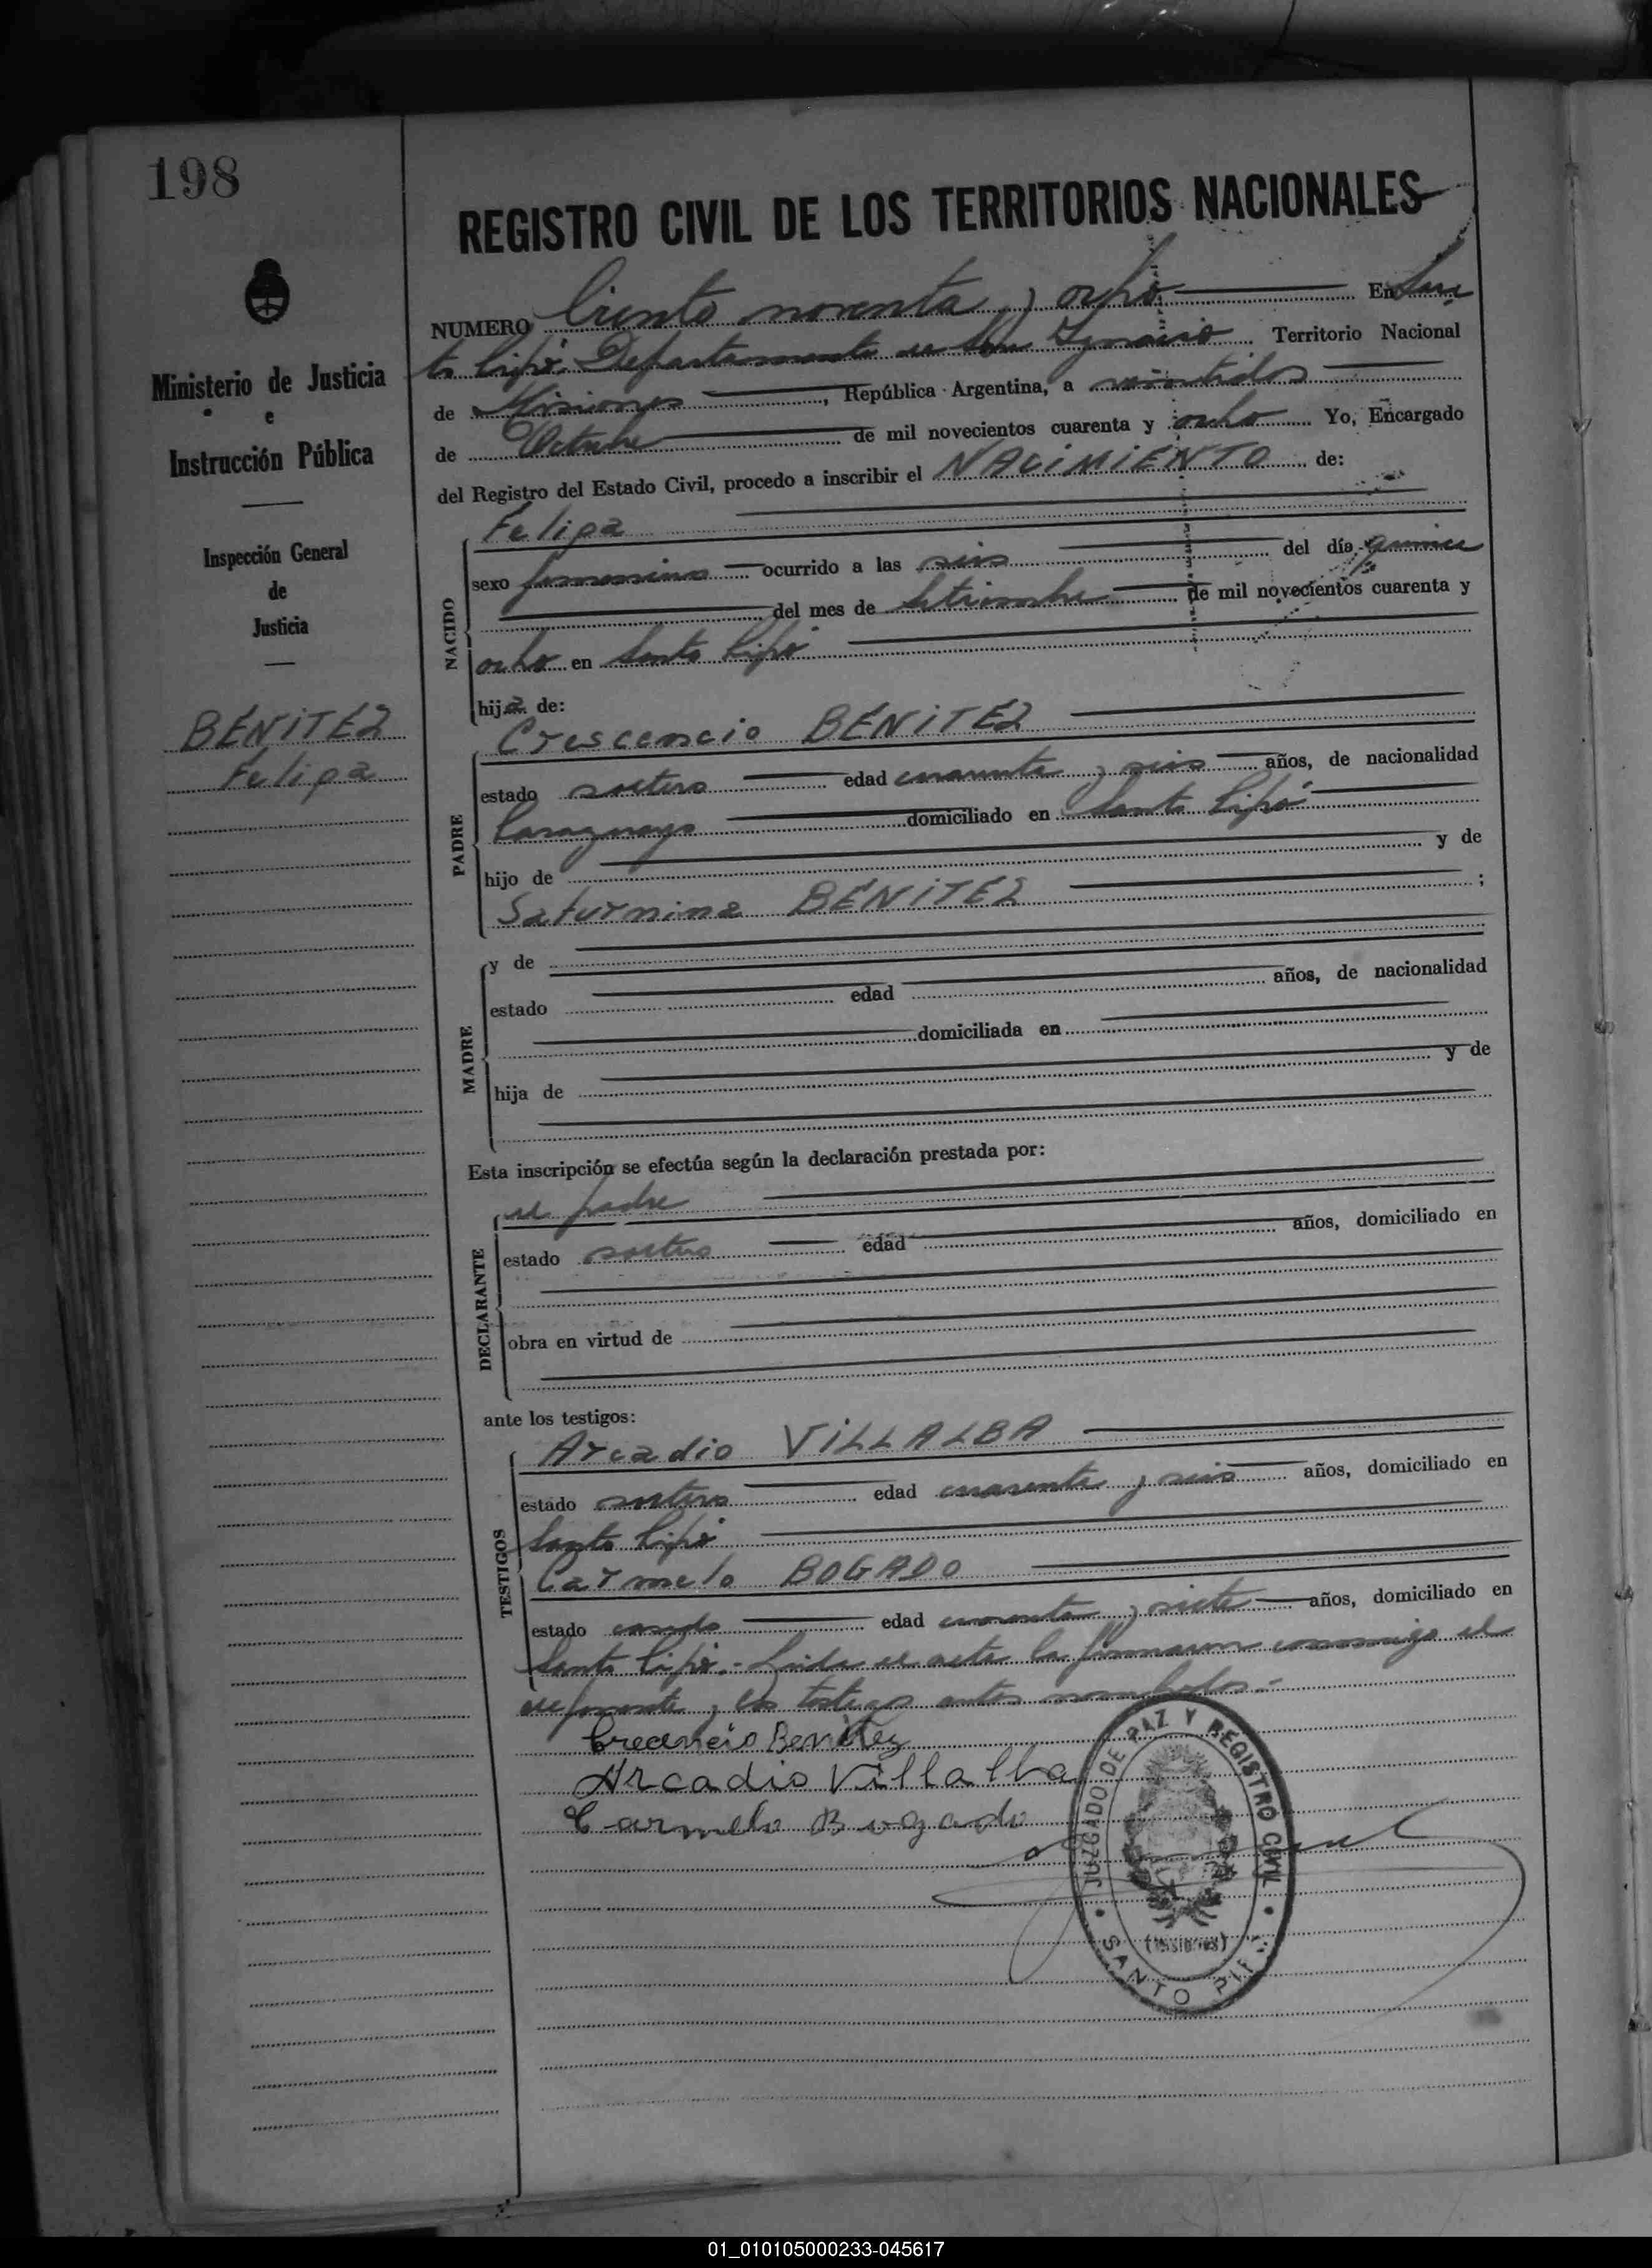 198
REGISTRO CIVIL DE LOS TERRITORIOS NACIONALES
NUMERO Ciento noventa y ocho En San
to Pipó. Departamento de San Ignacio Territorio Nacional
de Misiones, República Argentina, a veintidos
de Octubre de mil novecientos cuarenta y ocho Yo, Encargado
del Registro del Estado Civil, procedo a inscribir el NACIMIENTO de:
Ministerio de Justicia
e
Instrucción Pública
Inspección General
de
Justicia
BENITEZ
Felipa
NACIDO
Felipa
sexo femenino ocurrido a las seis del día quince
del mes de Setiembre de mil novecientos cuarenta y
ocho en Santo Pipó
hija de:
PADRE
Crescencio BENITEZ
estado soltero edad cuarenta y seis años, de nacionalidad
Paraguayo domiciliado en Santo Pipó
hijo de y de
Saturnina BENITEZ ;
MADRE
y de
estado edad años, de nacionalidad
domiciliada en
hija de y de
Esta inscripción se efectúa según la declaración prestada por:
DECLARANTE
el padre
estado soltero edad años, domiciliado en
obra en virtud de
ante los testigos:
TESTIGOS
Arcadio VILLALBA
estado soltero edad cuarenta y seis años, domiciliado en
Santo Pipó
Carmelo BOGADO
estado casado edad cuarenta y siete años, domiciliado en
Santo Pipó.- Leida el acta la firmaron conmigo el
declarante y los testigos antes nombrados.-
Crecencio Benitez
Arcadio Villalba
Carmelo Bogado
JUZGADO DE PAZ Y REGISTRO CIVIL
(Misiones)
SANTO PIPÓ
01_010105000233-045617